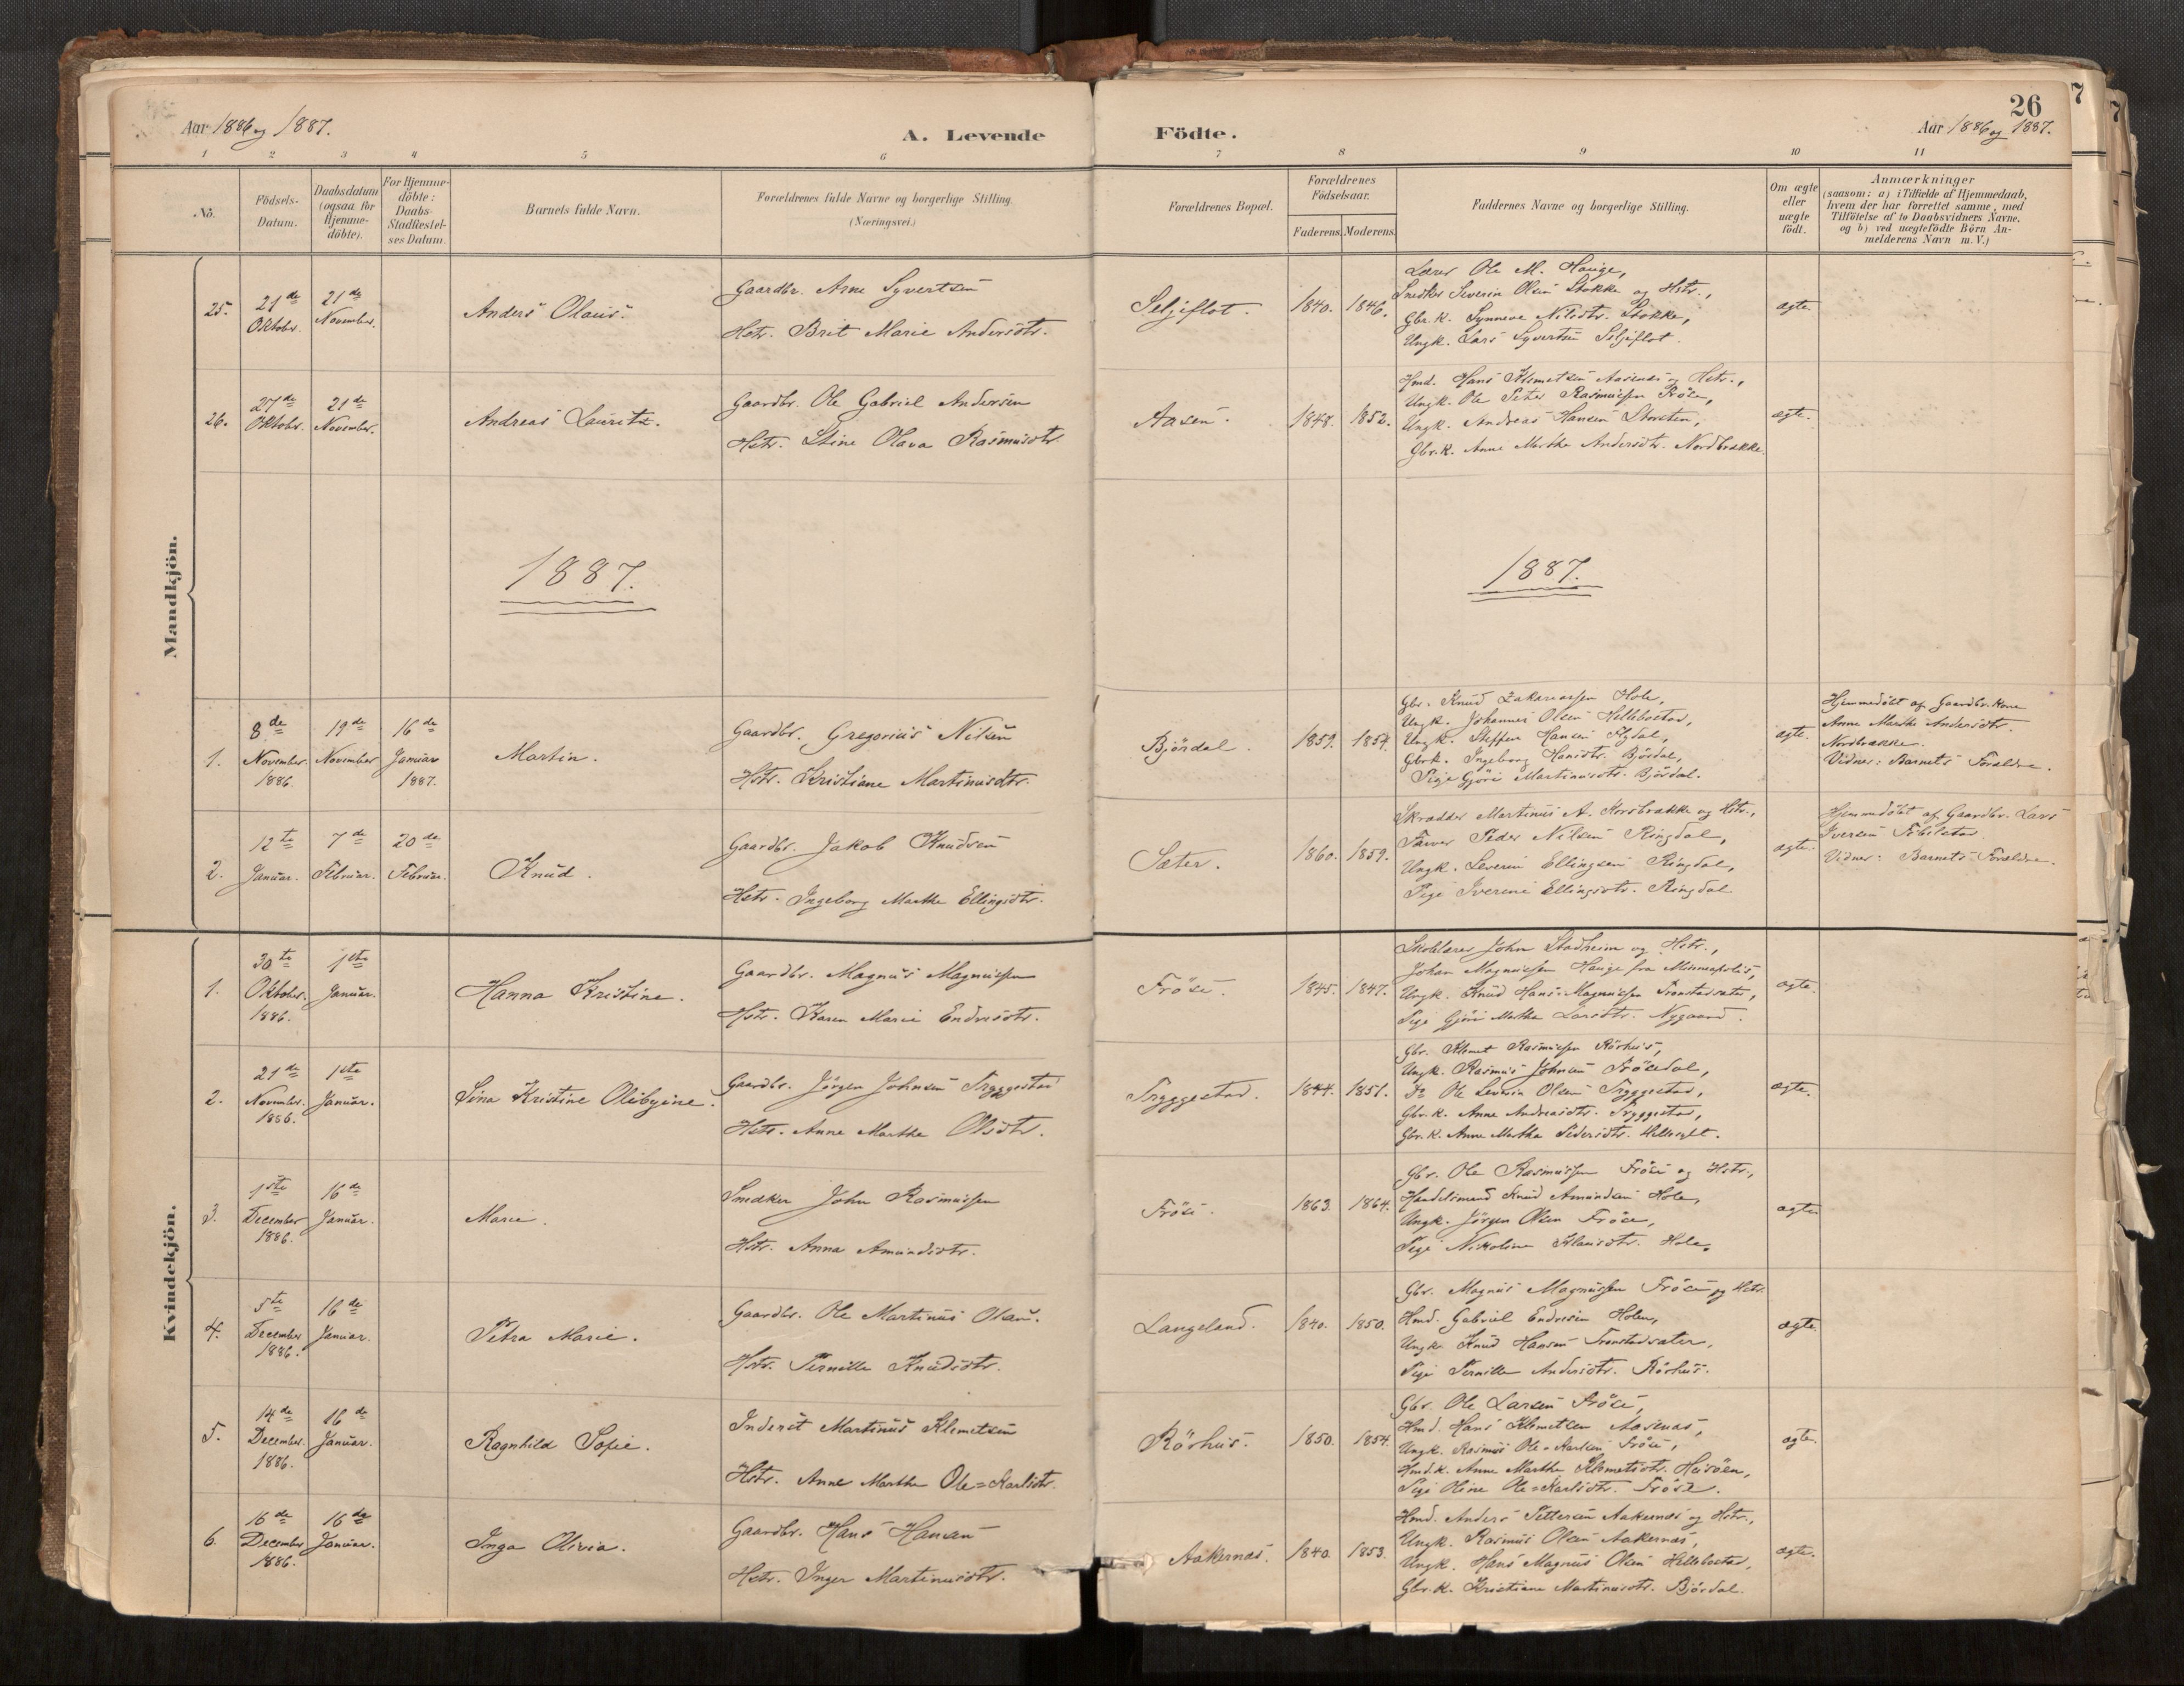 26
Aar 1886 og 1887.
A. Levende Födte.
Aar 1886 og 1887.
1 2 3 4 5 6 7 8 9 10 11
No.
Födsels-Datum.
Daabsdatum (ogsaa for Hjemme-döbte).
For Hjemme-döbte: Daabs-Stadfæstel-ses Datum.
Barnets fulde Navn.
Forældrenes fulde Navne og borgerlige Stilling.
(Næringsvei.)
Forældrenes Bopæl.
Forældrenes Födselsaar.
Faderens. Moderens.
Faddernes Navne og borgerlige Stilling.
Om ægte eller uægte födt.
Anmærkninger
(saasom: a) i Tilfælde af Hjemmedaab,
hvem der har forrettet samme, med
Tilföielse af to Daabsvidners Navne.
og b) ved uægtefödte Börn An-
melderens Navn m. V.)
Mandkjön.
25. 21de Oktober. 21de November. Anders Olaus.
Gaardbr. Arne Syvertsen
Hstr. Brit Marie Andersdtr.
Seljeflot. 1840. 1846.
Lærer Ole M. Hauge,
Snedker Severin Olsen Stokke og Hstr.,
Gbr.k. Synneve Nilsdtr. Stokke,
Ungk. Lars Syvertsen Seljeflot.
ægte.
26. 27de Oktober. 21de November. Andreas Lauritz.
Gaardbr. Ole Gabriel Andersen
Hstr. Stine Olava Rasmusdtr.
Aasen. 1848. 1852.
Hmd. Hans Klemetsen Aasenæs og Hstr.,
Ungk. Ole Peter Rasmussen Fröse,
Ungk. Andreas Hansen
Gbr.k. Anne Marthe Andersdtr. Nordbrække.
ægte.
1887.
1887.
1. 8de November 1886. 19de November 16de Januar 1887. Martin.
Gaardbr. Gregorius Nilsen
Hstr. Kristiane Martinusdtr.
Björdal. 1859. 1854.
Gbr. Knud Zakariassen Hole,
Ungk. Johannes Olsen Hellebostad,
Ungk. Steffen Hansen Flydal,
Gbrk. Ingeborg Hansdtr. Björdal,
Pige Gjöri Martinusdtr. Björdal.
ægte.
Hjemmedöbt af Gaardbr. Kone
Anne Marthe Andersdtr.
Nordbrække.
Vidner: Barnets Forældre.
2. 12te Januar. 7de Februar. 20de Februar. Knud.
Gaardbr. Jakob Knudsen
Hstr. Ingeborg Marthe Ellingsdtr.
Sæter. 1860. 1859.
Skrædder Martinus A. Korsbrække og Hstr.,
Farver Peder Nilsen Ringdal,
Ungk. Severin Ellingsen Ringdal,
Pige Iverine Ellingsdtr. Ringdal
ægte.
Hjemmedöbt af Gaardbr. Lars
Iversen
Vidner: Barnets Forældre.
Kvindekjön.
1. 30te Oktober. 1886. 1ste Januar. Hanna Kristine.
Gaardbr. Magnus Magnussen
Hstr. Karen Marie Endresdtr.
Fröse. 1845. 1847.
Skolelærer John Stadheim og Hstr.,
Johan Magnussen Hauge fra Minneapolis,
Ungk. Knud Hans Magnussen Tronstadsæter,
Pige Gjöri Marthe Larsdtr. Nygaard.
ægte.
2. 21de November. 1886. 1ste Januar. Sina Kristine Olibyine.
Gaardbr. Jörgen Johnsen Tryggestad
Hstr. Anne Marthe Olsdtr.
Tryggestad. 1844. 1851.
Gbr. Klemet Rasmussen Rörhus,
Ungk. Rasmus Johnsen Frösedal,
Do Ole Severin Olsen Tryggestad,
Gbr.k. Anne Andreasdtr. Tryggestad,
Gbr.k. Anne Marthe Pedersdtr. Hellesylt.
ægte.
3. 1ste December 1886. 16de Januar. Marie.
Snedker John Rasmussen
Hstr. Anna Amundsdtr.
Fröse. 1863. 1864.
Gbr. Ole Rasmussen Fröse og Hstr.,
Handelsmand Knud Amundsen Hole,
Ungk. Jörgen Olsen Fröse,
Pige Nikoline Klausdtr. Hole.
ægte.
4. 5te December 1886. 16de Januar. Petra Marie.
Gaardbr. Ole Martinus Olsen.
Hstr. Pernille Knudsdtr.
Langeland. 1840. 1850.
Gbr. Magnus Magnussen Fröse og Hstr.
Hmd. Gabriel Endresen Holen,
Ungk. Knud Hansen Tronstadsæter,
Pige Pernille Andersdtr. Rörhus.
ægte.
5. 14de December. 1886. 16de Januar. Ragnhild Sofie.
Inderst Martinus Klemetsen
Hstr. Anne Marthe Ole-Karlsdtr.
Rörhus. 1850. 1854.
Gbr. Ole Larsen Fröse,
Hmd. Hans Klemetsen Aasenæs,
Ungk. Rasmus Ole-Karlsen Fröse,
Hmd.k. Anne Marthe Klemetsdtr.
Pige Oline Ole-Karlsdtr. Fröse.
ægte.
6. 16de December 1886. 16de Januar. Inga Olivia.
Gaardbr. Hans Hansen
Hstr. Inger Martinusdtr.
Aakernæs. 1840. 1853.
Hmd. Anders Pettersen Aakernæs og Hstr.,
Ungk. Rasmus Olsen Aakernæs,
Ungk. Hans Magnus Olsen Hellebostad,
Gbr.k. Kristiane Martinusdtr. Björdal.
ægte.